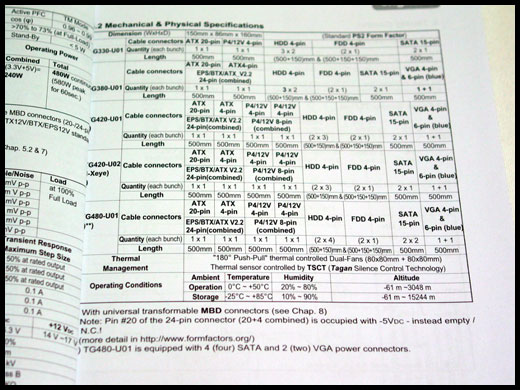 Active PFC
>70% to 73% (at Full Load)
Stand-By
Operating Power
Combined
(3.3V+5V)=
240W
Total
480W
(580W peak
for 60sec.)
MBD connectors (20-/24-p
12X/12V/BTX/EPS12V standa
chap. 5.2 & 7)
Load
at 100%
Full Load
mV p-p
mV p-p
mV p-p
mV p-p
mV p-p
Transient Response
Maximum Step Size
50% at rated output
50% at rated output
50% at rated output
0.1 A
0.1 A
+12 VDC
.2 Mechanical & Physical Specifications
Dimension (WxHxD) 150mm x 86mm x 160mm (Standard PS2 Form Factor)
G330-U01 Cable connectors ATX 20-pin P4/12V 4-pin HDD 4-pin FDD 4-pin SATA 15-pin
Quantity (each bunch) 1 x 1 1 x 1 3 x 2 (1 x 1) 2 x 1
Length 500mm 500mm (500+150)mm (500+150+150)mm 500mm
G380-U01 Cable connectors ATX 20-pin ATX4-pin HDD 4-pin FDD 4-pin SATA 15-pin VGA 4-pin & 6-pin (blue)
EPS/BTX/ATX V2.2 24-pin (combined)
Quantity (each bunch) 1 x 1 1 x 1 3 x 2 (1 x 1) 2 x 1 1 + 1
Length 500mm 500mm (500+150)mm & (500+150+150)mm 500mm 500mm
G420-U01 Cable connectors ATX 20-pin ATX 4-pin P4/12V 4-pin P4/12V 4-pin HDD 4-pin FDD 4-pin SATA 15-pin VGA 4-pin & 6-pin (blue)
EPS/BTX/ATX V2.2 24-pin(combined) P4/12V 8-pin (combined)
Quantity (each bunch) 1 x 1 1 x 1 1 x 1 1 x 1 (2 x 3) (2 x 1) 2 x 1 1 + 1
Length 500mm 500mm 500mm 500mm (500+150)mm & (500+150+150)mm 500mm 500mm
TG420-U02 -Xeye) Cable connectors ATX 20-pin ATX 4-pin P4/12V 4-pin P4/12V 4-pin HDD 4-pin FDD 4-pin SATA 15-pin VGA 4-pin & 6-pin (blue)
EPS/BTX/ATX V2.2 24-pin(combined) P4/12V 8-pin (combined)
Quantity (each bunch) 1 x 1 1 x 1 1 x 1 1 x 1 (2 x 3) (2 x 1) 2 x 1 1 + 1
Length 500mm 500mm 500mm 500mm (500+150)mm & (500+150+150)mm 500mm 500mm
G480-U01 )**) Cable connectors ATX 20-pin ATX 4-pin P4/12V 4-pin P4/12V 4-pin HDD 4-pin FDD 4-pin SATA 15-pin VGA 4-pin & 6-pin (blue)
EPS/BTX/ATX V2.2 24-pin(combined) P4/12V 8-pin (combined)
Quantity (each bunch) 1 x 1 1 x 1 1 x 1 1 x 1 (2 x 4) (2 x 1) 2 x 1 1 + 1
Length 500mm 500mm 500mm 500mm (500+150)mm & (500+150+150)mm 500mm 500mm
Thermal Management "180° Push-Pull" thermal controlled Dual-Fans (80x80mm + 80x80mm)
Thermal sensor controlled by TSCT (Tagan Silence Control Technology)
Operating Conditions Ambient Temperature Humidity Altitude
Operation 0°C ~ +50°C 20% ~ 80% -61 m ~3048 m
Storage -25°C ~ +85°C 10% ~ 90% -61 m ~ 15244 m
With universal transformable MBD connectors (see Chap. 8)
Note: Pin #20 of the 24-pin connector (20+4 combined) is occupied with -5VDC - instead empty /
N.C.!
(more detail in http://www.formfactors.org/)
) TG480-U01 is equipped with 4 (four) SATA and 2 (two) VGA power connectors.